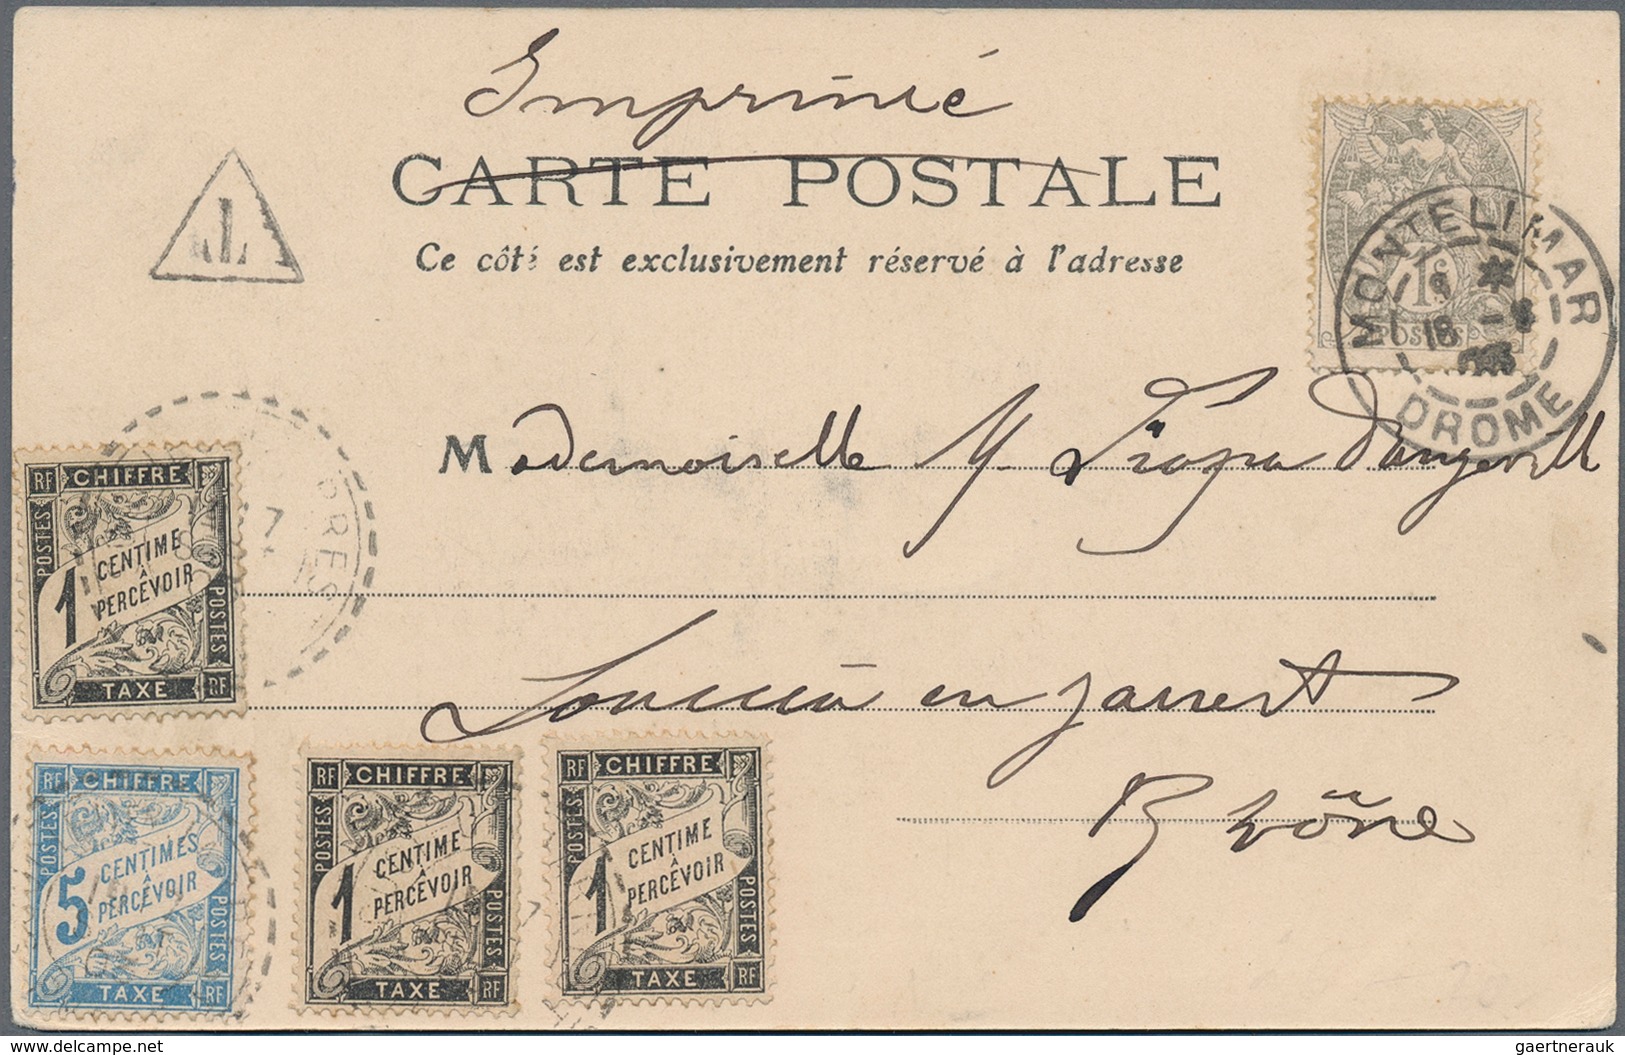 Imprimé
CARTE POSTALE
Ce côté est exclusivement réservé à l'adresse
T
1c
POSTES
MONTELIMAR
18
DROME
Mademoiselle
en Jarrest
Rhône
RF CHIFFRE
POSTES
1 CENTIME
À
PERCEVOIR
POSTES
TAXE RF
7
RF CHIFFRE
POSTES
5 CENTIMES
À
PERCEVOIR
POSTES
TAXE RF
RF CHIFFRE
POSTES
1 CENTIME
À
PERCEVOIR
POSTES
TAXE RF
RF CHIFFRE
POSTES
1 CENTIME
À
PERCEVOIR
POSTES
TAXE RF
www.delcampe.com
gaertnerauk